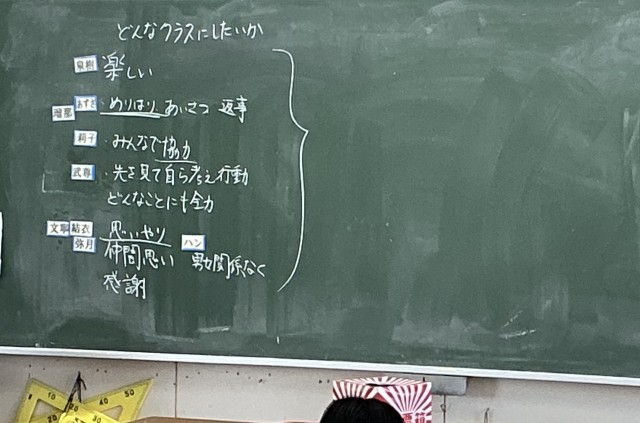 どんなクラスにしたいか
泉樹 楽しい
瑠那 あずき ・めりはり あいさつ 返事
莉子 ・みんなで協力
武尊 ・先を見て自ら考え行動
どんなことにも全力
結衣 弥月 思いやり ハン
仲間思い 男女関係なく
感謝
10 40 50
20 30